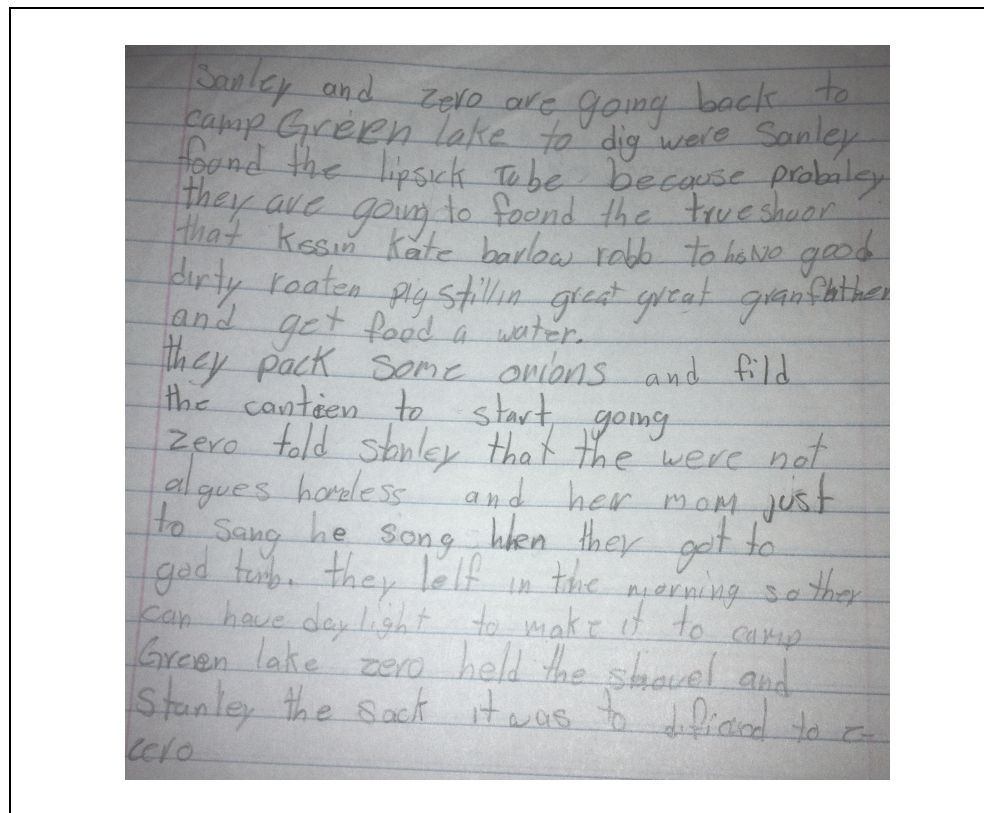 Sanley and zero are going back to
camp Green lake to dig were Sanley
foond the lipsick Tube because probaley
they are going to foond the trueshuor
that Kssin Kate barlow robb to his No good
dirty roaten pig stillin great great granfather
and get food a water.
they pack some onions and fild
the canteen to start going
zero told stanley that the were not
algues homeless and her mom just
to sang he song when they got to
god tumb. they lelf in the morning so they
can have daylight to make it to camp
Green lake zero held the shovel and
Stanley the sack it was to dificord to z-
cero